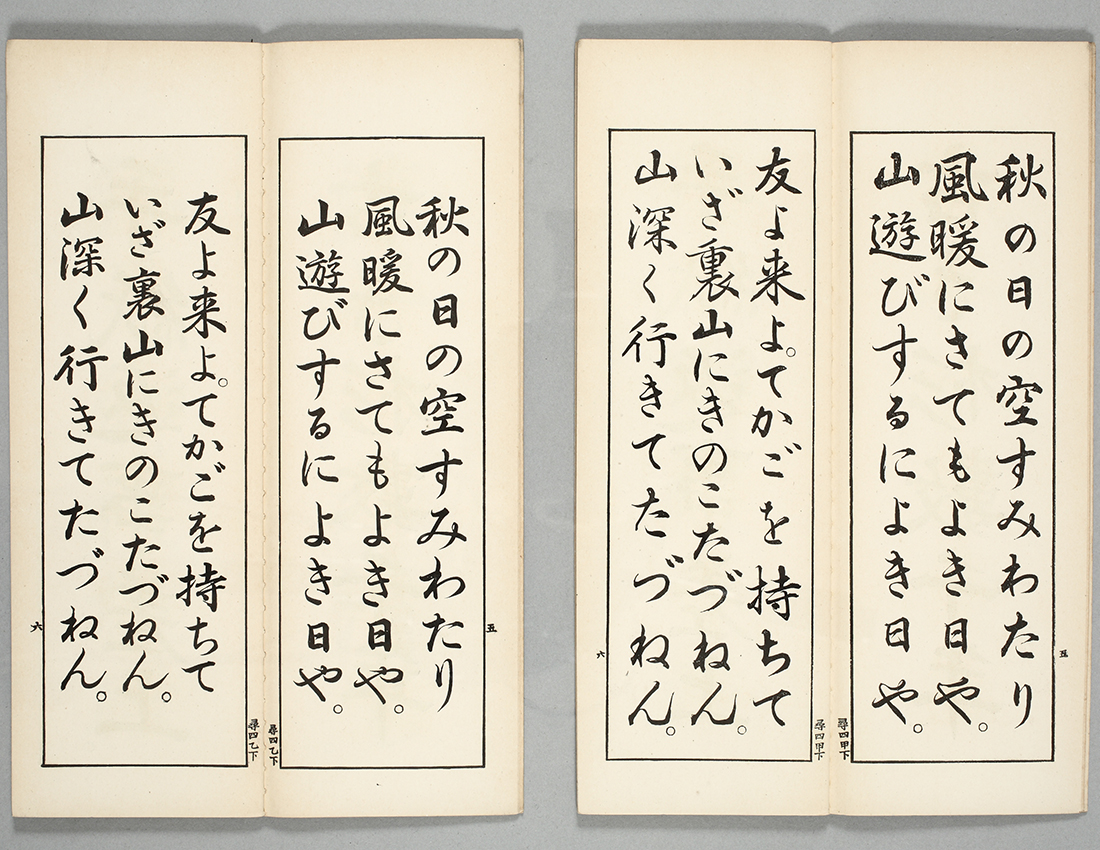 秋の日の空すみわたり
風暖にさてもよき日や。
山遊びするによき日や。
五
尋四甲下
尋四甲下
友よ来よ。てかごを持ちて
いざ裏山にきのこたづねん。
山深く行きてたづねん。
六
秋の日の空すみわたり
風暖にさてもよき日や。
山遊びするによき日や。
五
尋四乙下
尋四乙下
友よ来よ。てかごを持ちて
いざ裏山にきのこたづねん。
山深く行きてたづねん。
六